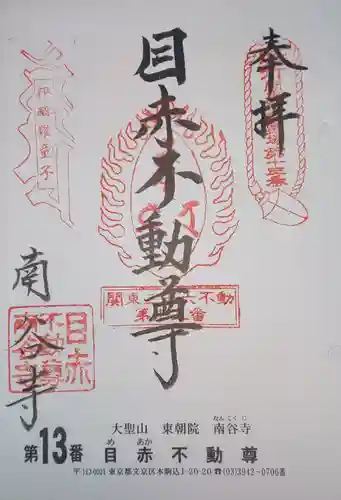 奉拝
目赤不動尊
南谷寺
関東三十六不動
第 番
目赤
不動尊
南谷寺
大聖山 東朝院 南谷寺
なんこくじ
第13番 目赤不動尊
め あか
〒113-0021 東京都文京区本駒込1-20-20 ☎(03)3942-0706番